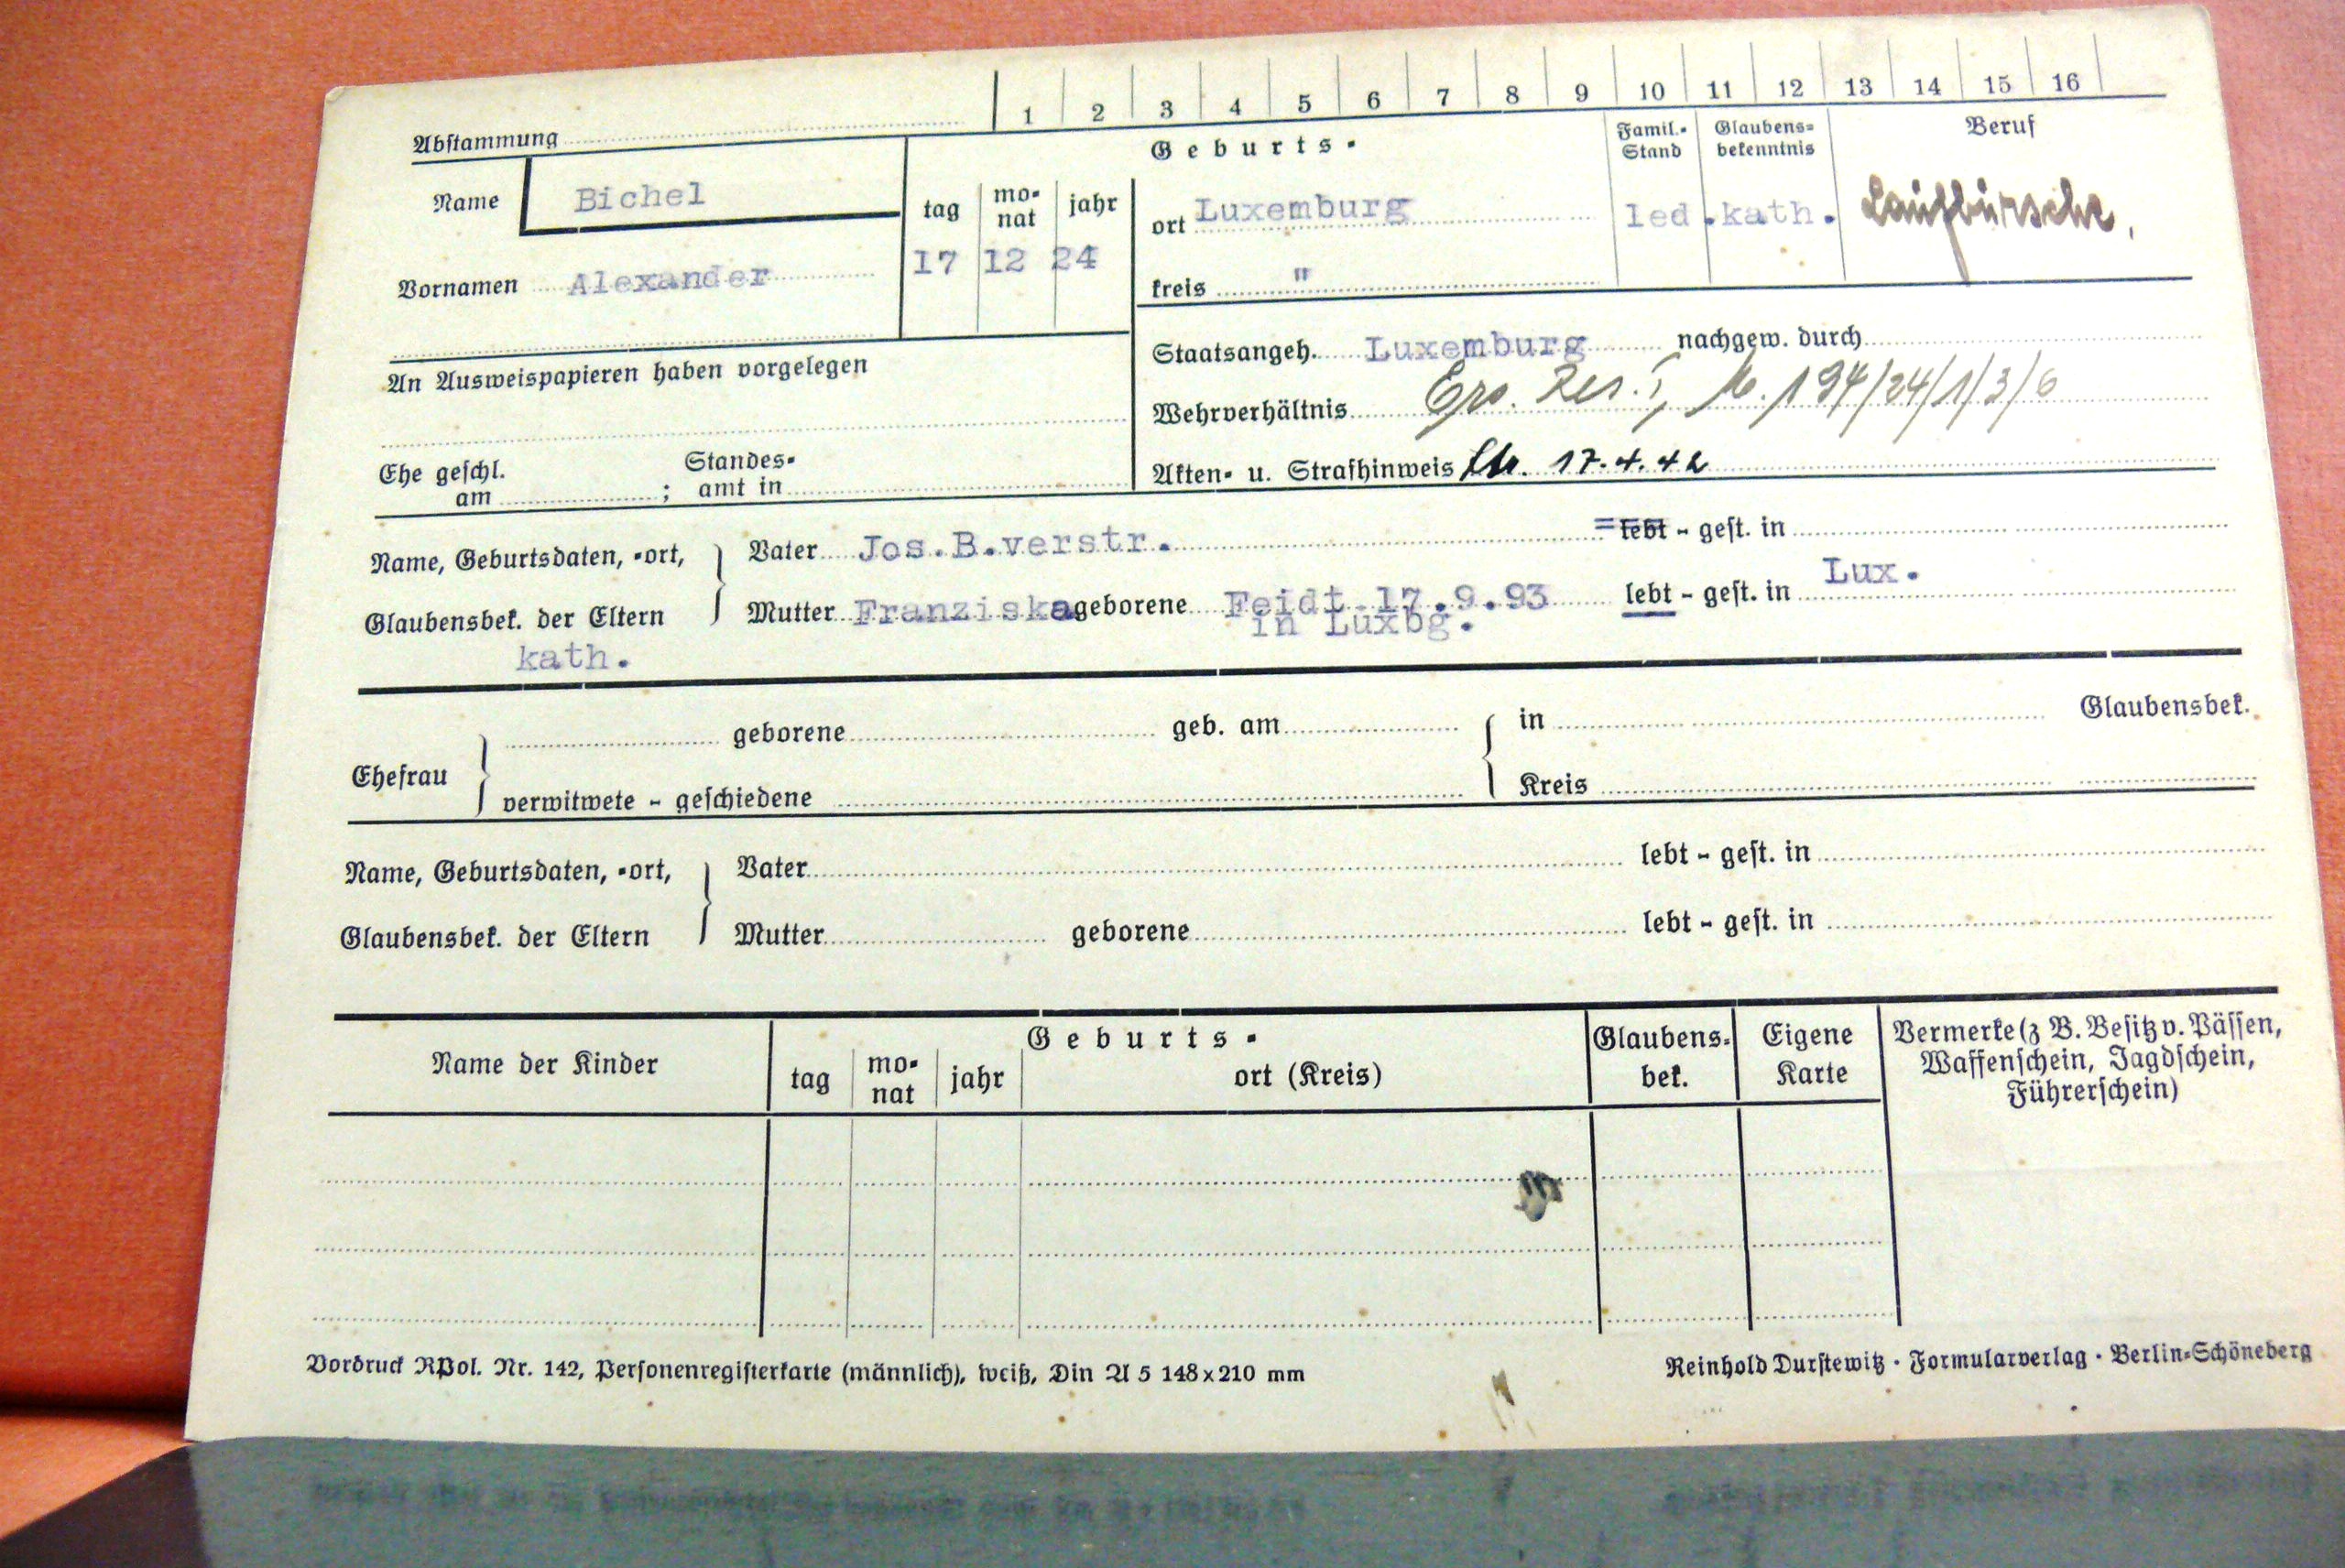 1 2 3 4 5 6 7 8 9 10 11 12 13 14 15 16
Abstammung
Name Bichel
Geburts-
Famil.-Stand Glaubens-bekenntnis Beruf
tag mo-nat jahr
ort Luxemburg led. kath. Laufbursche,
Vornamen Alexander 17 12 24
kreis "
An Ausweispapieren haben vorgelegen
Staatsangeh. Luxemburg nachgew. durch
Wehrverhältnis Ers. Res. I, 194/24/1/3/6
Ehe geschl. am ; Standes-amt in
Akten- u. Strafhinweis 17.4.42
Name, Geburtsdaten, -ort, Vater Jos.B.verstr. lebt - gest. in
Glaubensbek. der Eltern Mutter Franziska geborene Feidt 17.9.93 lebt - gest. in Lux.
in Luxbg.
kath.
geborene geb. am in Glaubensbek.
Ehefrau
verwitwete - geschiedene Kreis
Name, Geburtsdaten, -ort, Vater lebt - gest. in
Glaubensbek. der Eltern Mutter geborene lebt - gest. in
Name der Kinder
Geburts-
tag mo-nat jahr ort (Kreis)
Glaubens-bek.
Eigene Karte
Vermerke (z B. Besitz v. Pässen,
Waffenschein, Jagdschein,
Führerschein)
Vordruck RPol. Nr. 142, Personenregisterkarte (männlich), weiß, Din A 5 148x210 mm
Reinhold Durstewitz · Formularverlag · Berlin-Schöneberg